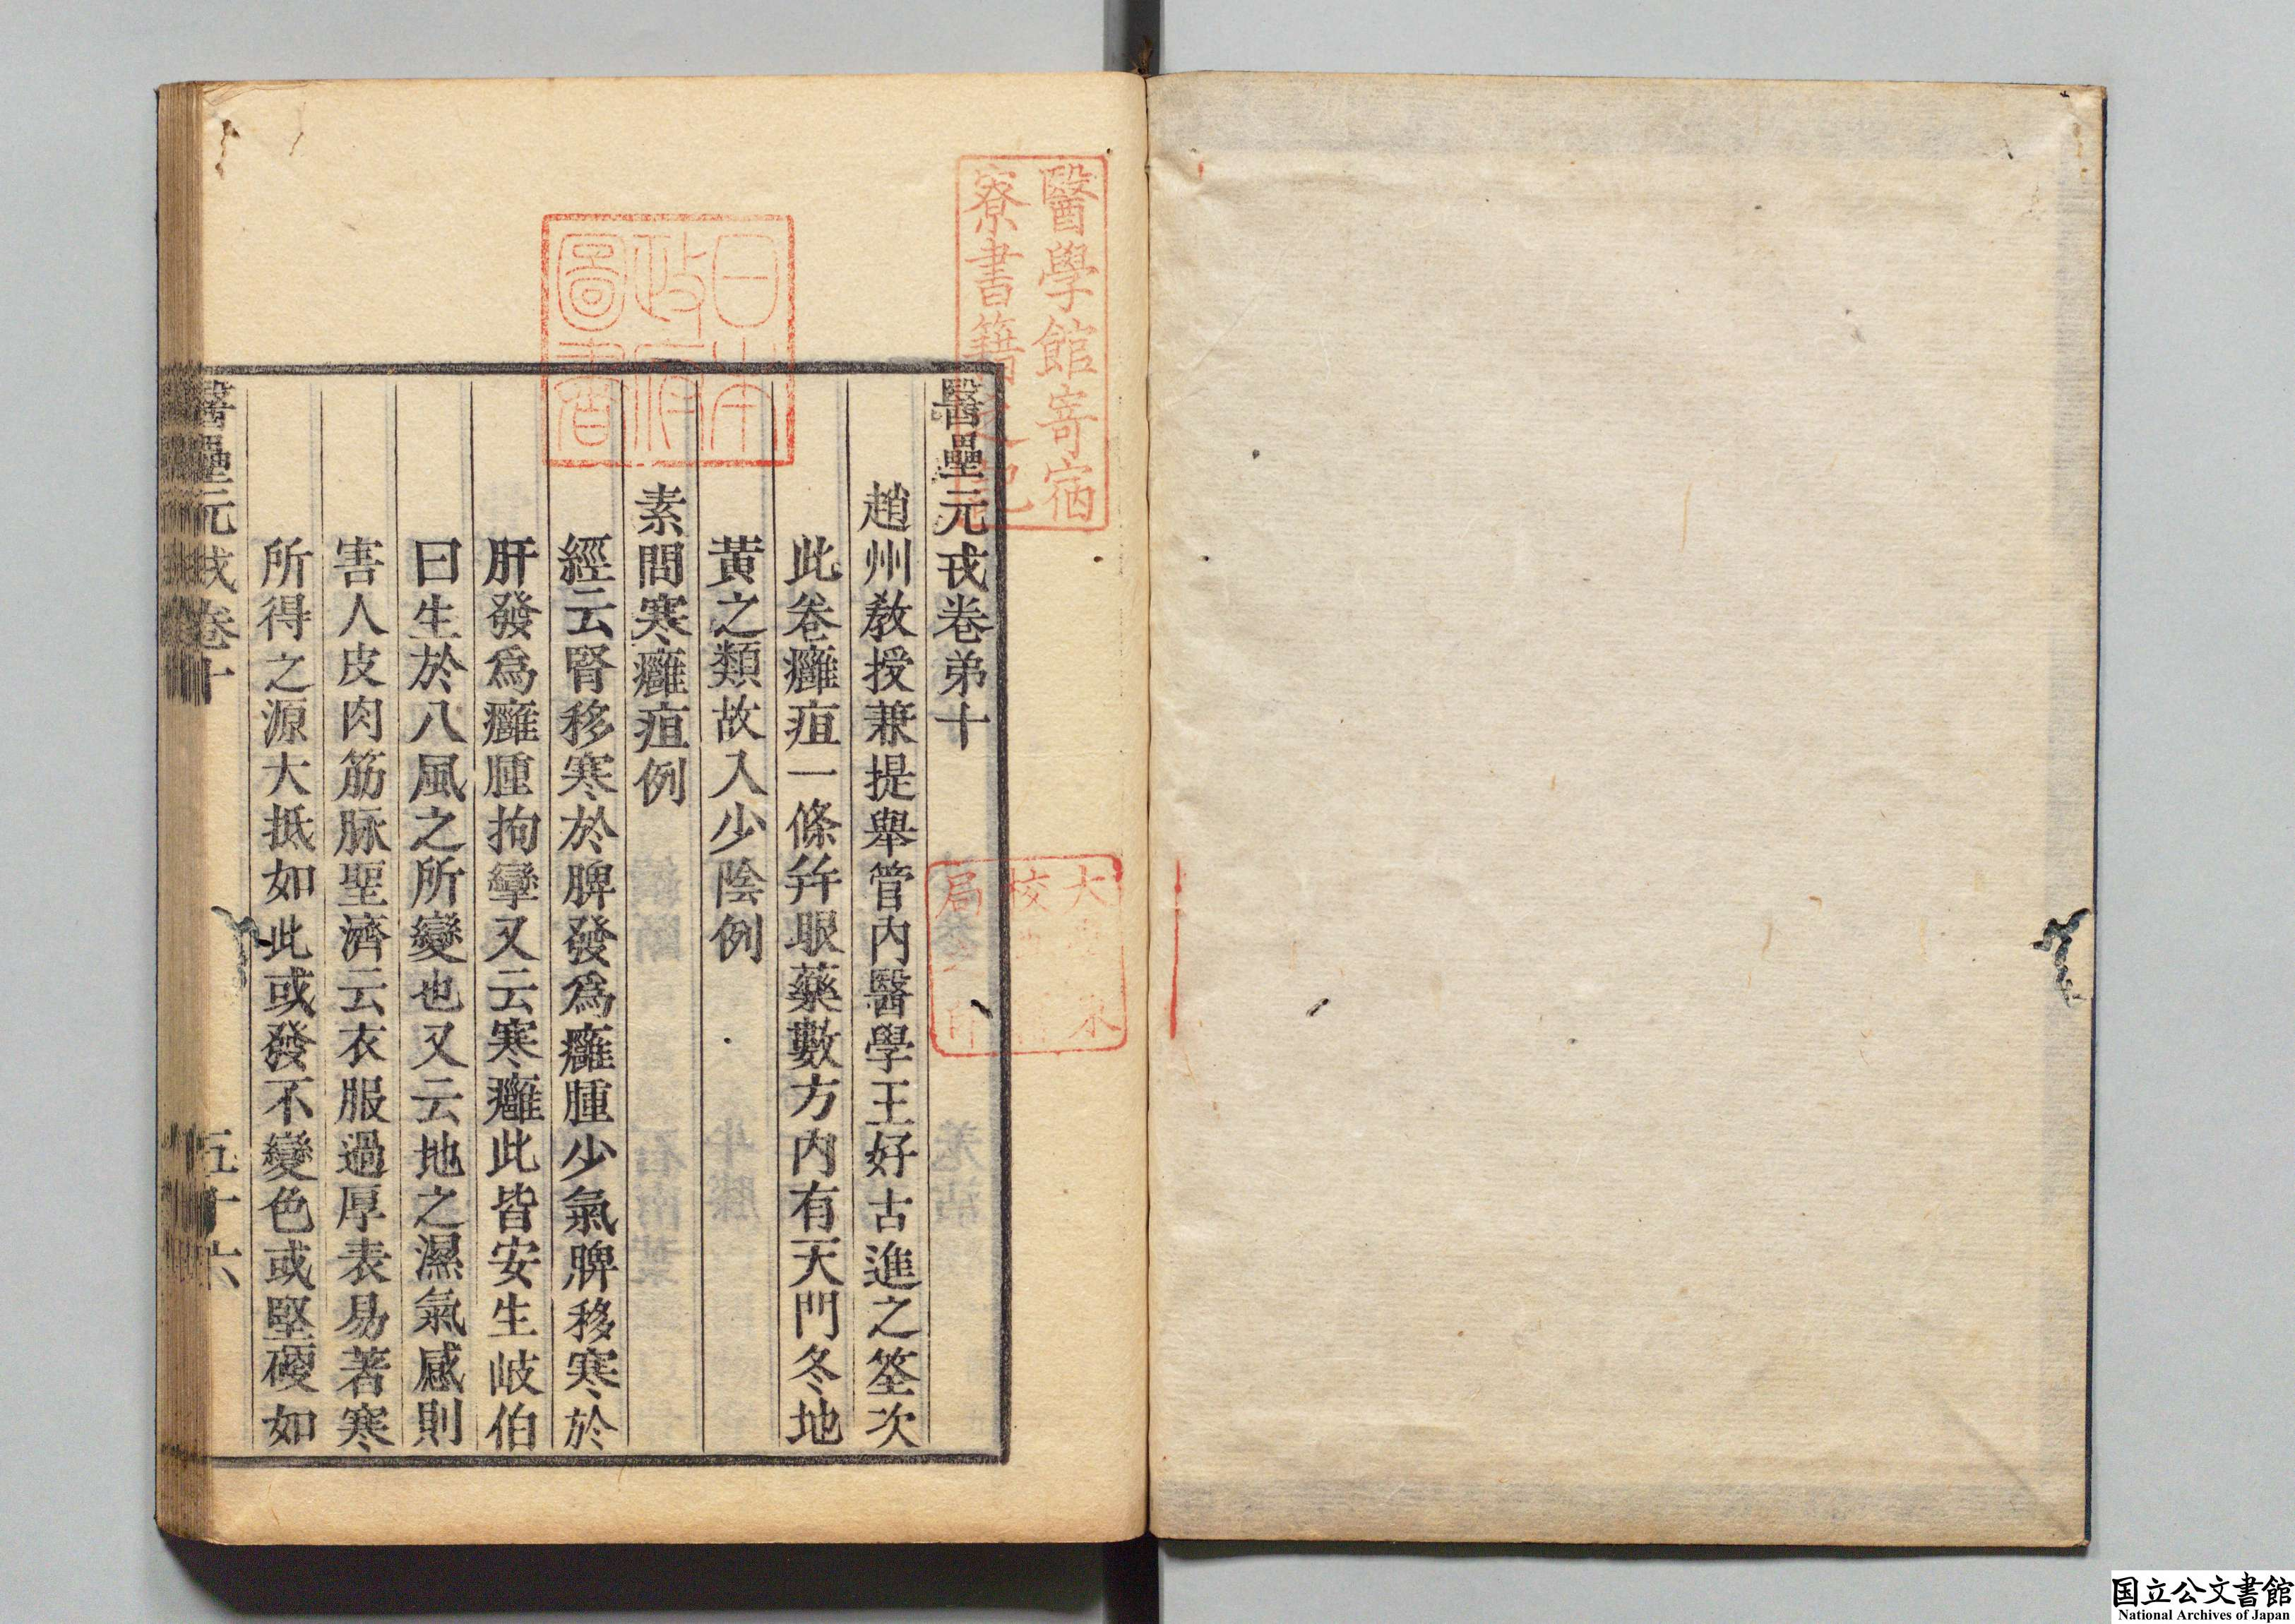 醫壘元戎卷弟十
趙州教授兼提舉管內醫學王好古進之筌次
此卷癰疽一條并眼藥數方內有天門冬地
黃之類故入少陰例
素問寒癰疽例
經云腎移寒於脾發爲癰腫少氣脾移寒於
肝發爲癰腫拘攣又云寒癰此皆安生岐伯
曰生於八風之所變也又云地之濕氣感則
害人皮肉筋脉聖濟云衣服過厚表易著寒
所得之源大抵如此或發不變色或堅硬如
醫壘元戎卷十
五十六
醫學館寄宿
寮書籍之記
日本
政府
圖書
国立公文書館
National Archives of Japan